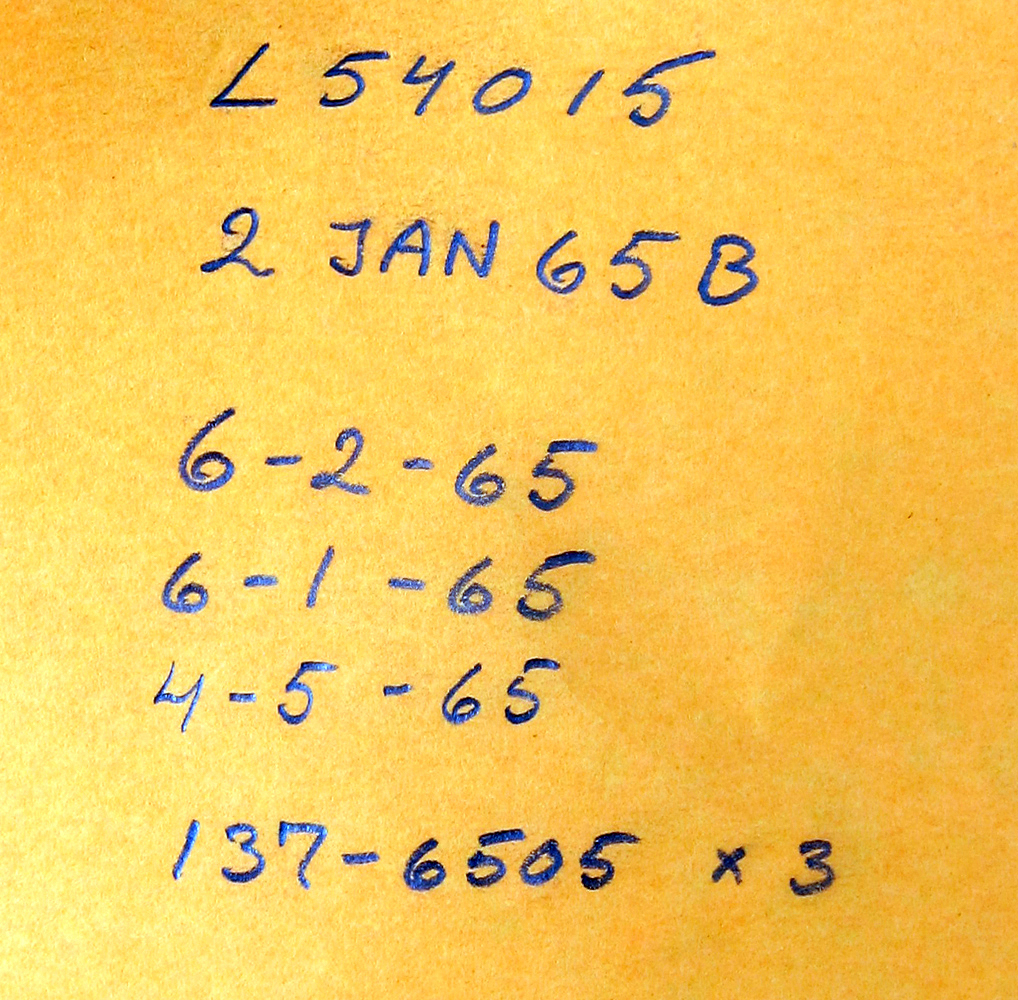 L54015
2 JAN 65 B
6-2-65
6-1-65
4-5-65
137-6505 x 3